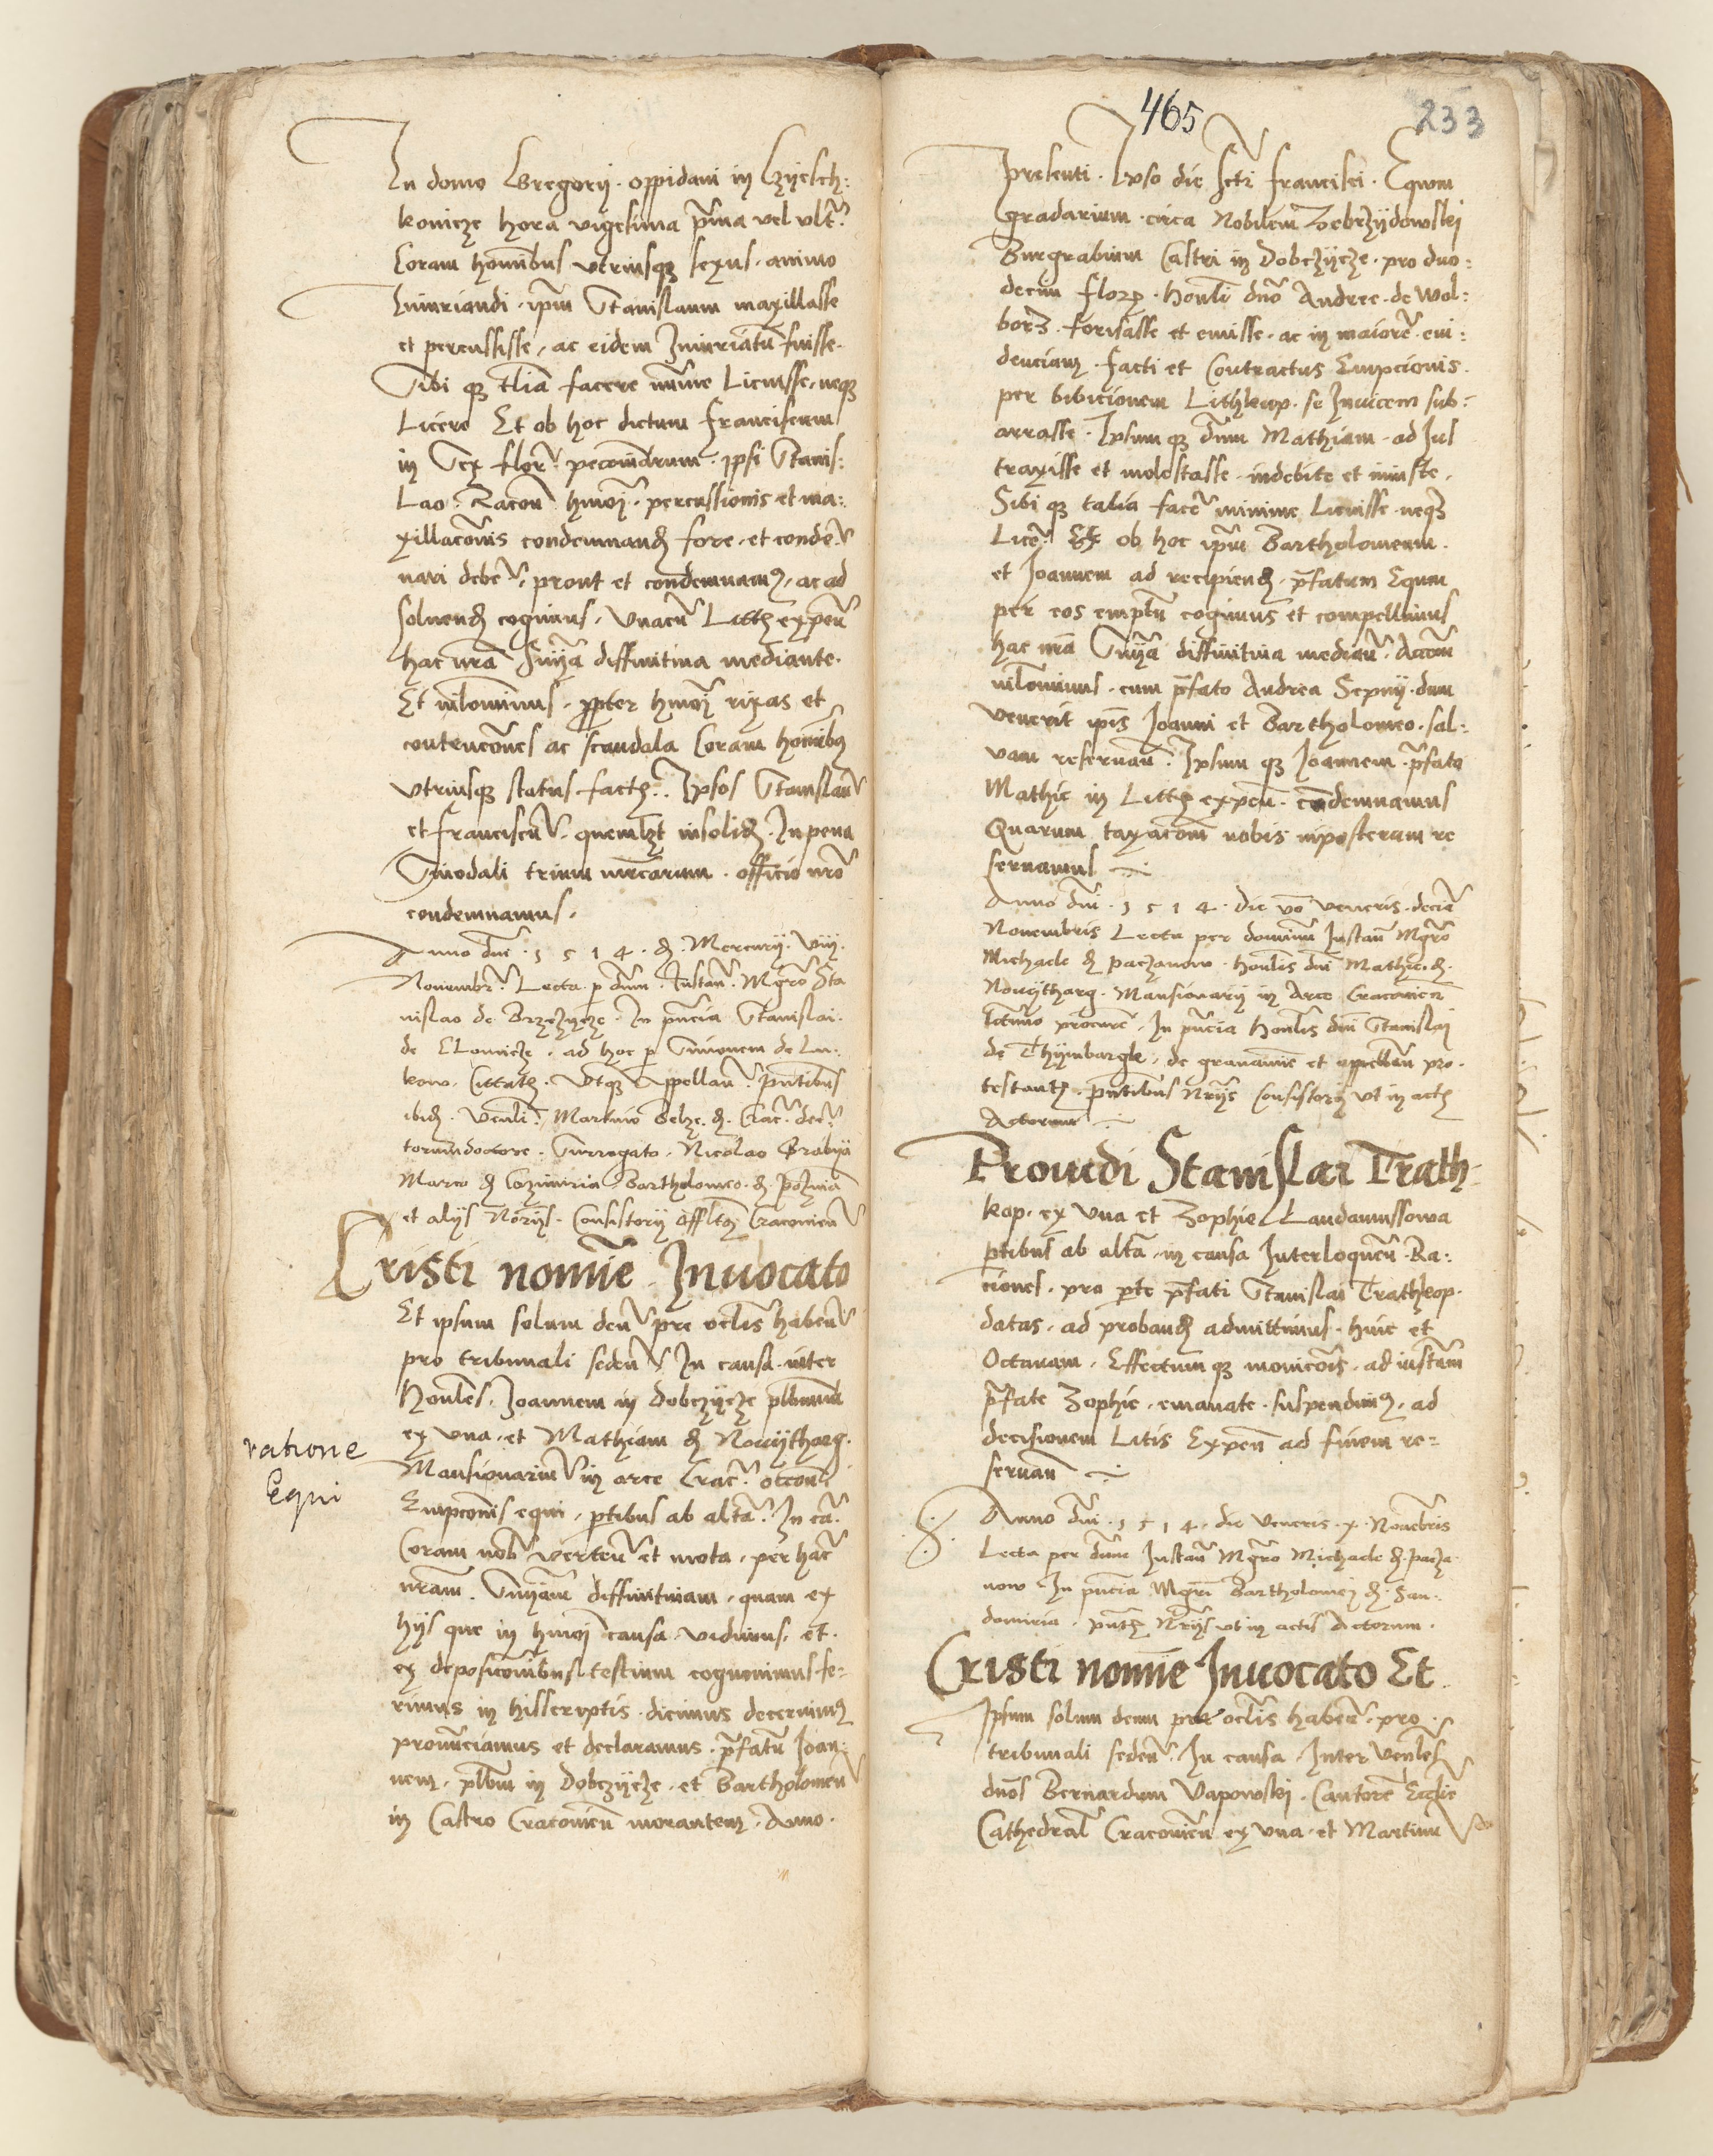 In domo Gregorij . oppidani in Czijesch:
kowicze hora vigesima prima vel vltra
Coram hominibus vtriusque sexus . animo
Iniuriandi . ipsum Stanislaum maxillasse
et percussisse, ac eidem Iniuriatum fuisse.
Sibi que talia facere minime Licuisse, neque
Licere Et ob hoc dictum Franciscum
in Sex flor. pecuniarum . ipsi Stanis:
Lao . Racone hmoi . percussionis et ma:
xillaconis condemnand fore . et condem
nari debere, prout et condemnamus, ac ad
soluend cogimus . Vnacum Littis expen
hac nra Snia diffinitiua mediante.
Et nilominus . propter hmoi rixas et
contencones ac scandala Coram hominibus
vtriusque status factis . Ipsos Stanislaum
et Franciscum . quemlibet insolid . In pena
Sinodali trium mrcarum . officio nro
condemnamus.
Anno dni . 1 5 1 4 . die Mercurij . viij.
Nouembr. Lecta . p dnm . Instan . Mgro Sta
nislao de Brzezijcze . In pncia Stanislai.
de . ad hoc p Simonem de Lu:
kow . Cittatis . Vtque Appellan . pntibus
ibid . Venli . Martino Belze . de . Crac . decre
torum doctore . Surrogato . Nicolao Grabija
Marco de Cazimiria Bartholomeo . de . Poznania
et alijs Norijs . Consistorij Cracouien
Cristi nomine Inuocato
Et ipsum solum deum pre oclis haben
pro tribunali seden In causa . inter
Honles . Joannem in Dobczijcze plbanum
ex vna . et Mathiam de Nowijtharg.
Mansionarium in arce Crac . occone
Empconis equi . ptibus ab altera . In ca.
Coram nob verten et mota . per hanc
nram . Sniam diffinitiuam . quam ex
hijs que in hmoi causa . vidimus . et.
ex deposiconibus testium cognouimus fe:
rimus in hisscriptis . dicimus decernimus
pronunciamus et declaramus . prefatum Joan:
nem . plbnm in Dobczijcze . et Bartholomeum
in Castro Cracouien morantem . Anno.
ratione
Equi
465
233
presenti . Ipso die Scti Francisci . Equm
gradarium . circa Nobilem Zebrzijdowskj
Burgrabium Castri in Dobczijcze . pro duo:
decim florp . Honli dno Andree . de Wol:
borz . forisasse et emisse . ac in maiorem . eui:
denciam . facti et Contractus Empcionis.
per bibicionem Lithkup . se Inuicem sub:
arrasse . Ipsum que dnm Mathiam . ad Jus
traxisse et molestasse . indebite et iniuste.
Sibi que talia facere minime Licuisse . neque
Licere. Et ob hoc ipsum Bartholomeum.
et Joannem ad recipiend . prefatum Equm
per eos emptum cogimus et compellimus
hac nra Snia diffinitiua median . Accone
nilominus . cum prefato Andrea . dum
venerit ipis Joanni et Bartholomeo . sal:
vam reseruan . Ipsum que Joannem . prefato
Mathie in Littis expen . condemnamus
Quarum taxacom nobis inposterum re
seruamus
Anno dni . 1 5 1 4 . die vo veneris . decima
Nouembris Lecta per dominum Instan Mgro
Michaele de Paczanow . honlis dni Mathie . de.
Nowijtharg . Mansionarij in Arce Cracouien
procure . In pncia Honlis dni Stanislaj
de Thijmbargk . de grauamine et appellan pro.
testantis . pntibus Nrijs Consistorij vt in actis
Actorum
Prouidi Stanislai Trath:
kop . ex vna et Zophie
ptibus ab altera . in causa Interloquen . Ra:
ciones . pro parte prefati Stanislai Trathkop.
datas . ad proband admittimus . hinc et
Octauam . Effectum que monicois . ad instam
prefate Zophie . emanate . suspendimus . ad
decisionem Litis Expen ad finem re:
seruan
Anno dni . 1 5 1 4 . die veneris . x . Nouembris
Lecta per dnm Instan Mgro Michaele de . Pacza
now In pncia Mgri Bartholomej de . San:
domiria . pntibus Nrijs vt in actis Actorum.
Cristi nomine Inuocato Et
Ipsum solum deum pre oclis haben . pro
tribunali seden . In causa . Inter Venles
dnos Bernardum Vapowskj . Cantorem Ecclie
Cathedral Cracouien ex vna . et Martinum